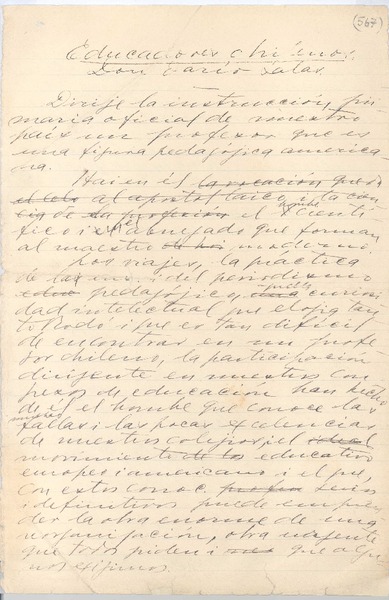 (567)
Educadores chilenos.
Don Darío Salas.
Dirije la instrucción pri
maria oficial de nuestro
país un profesor que es
una figura pedagójica america
na.
Hai en él la vocación que
al apóstol laico i la
de su profesión el hombre cientí
fico i el abnegado que forman
al maestro moderno.
Los viajes, la práctica
de las i del periodismo
pedagójico, una aquella curiosi
dad intelectual que el ojea tan
to todo i que es tan difícil
de encontrar en un profe
sor chileno, la participación
dirijente en nuestros con
gresos de educación han hecho
de él el hombre que conoce las muchas
fallas i las pocas excelencias
de nuestros colejios, i el ideal
movimiento de los educativo
europeo i americano i el que,
con estos conoc. serios
i definitivos puede empren
der la obra enorme de una
reorganización, obra urjente
que todos piden i que algu
nos exijimos.